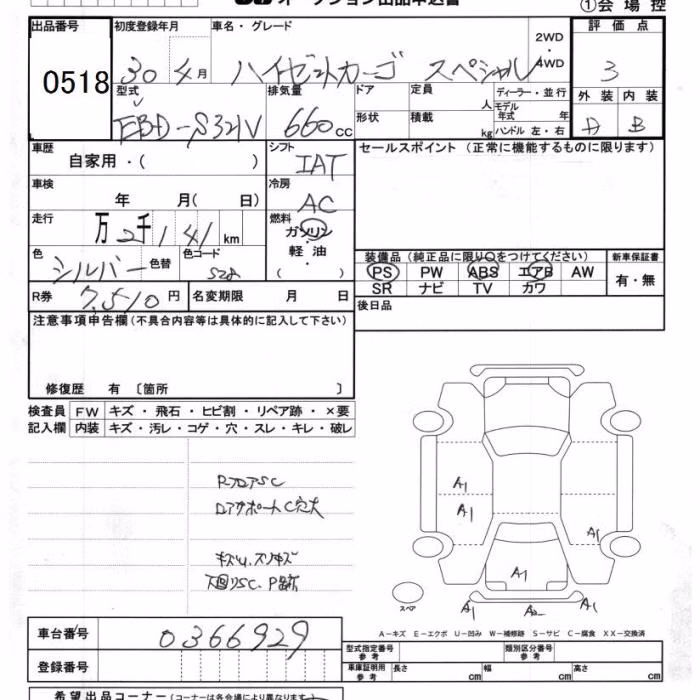 オークション出品申込書
①会場控
出品番号 初度登録年月 車名・グレード 評価点
0518 30年4月 ハイゼットカーゴ スペシャル 2WD・4WD 3
型式 排気量 ドア 定員 人 ディーラー・並行 外装 内装
EBD-S321V 660cc 形状 積載 kg モデル年式 年 ハンドル 左・右 D B
車歴 シフト セールスポイント (正常に機能するものに限ります)
自家用・( ) IAT
車検 冷房
年 月( 日) AC
走行 燃料
万2千141km ガソリン
軽油
( )
色 色替 色コード
シルバー S28
装備品(純正品に限り○をつけてください) 新車保証書
PS PW ABS エアB AW 有・無
SR ナビ TV カワ
R券 7,510円 名変期限 月 日 後日品
注意事項申告欄(不具合内容等は具体的に記入して下さい)
修復歴 有 〔箇所 〕
検査員 FW キズ・飛石・ヒビ割・リペア跡・×要
記入欄 内装 キズ・汚レ・コゲ・穴・スレ・キレ・破レ
RフロアSC
ロアサポートC穴大
キズU、スリキズ
下廻りSC、P跡
A1
A1
A1
A1
A1 A2 A1
スペア
A-キズ E-エクボ U-凹み W-補修跡 S-サビ C-腐食 XX-交換済
車台番号 0366929
登録番号
型式指定番号 参考 類別区分番号 参考
車庫証明用 参考 長さ cm 幅 cm 高さ cm
希望出品コーナー(コーナーは各会場により異なります